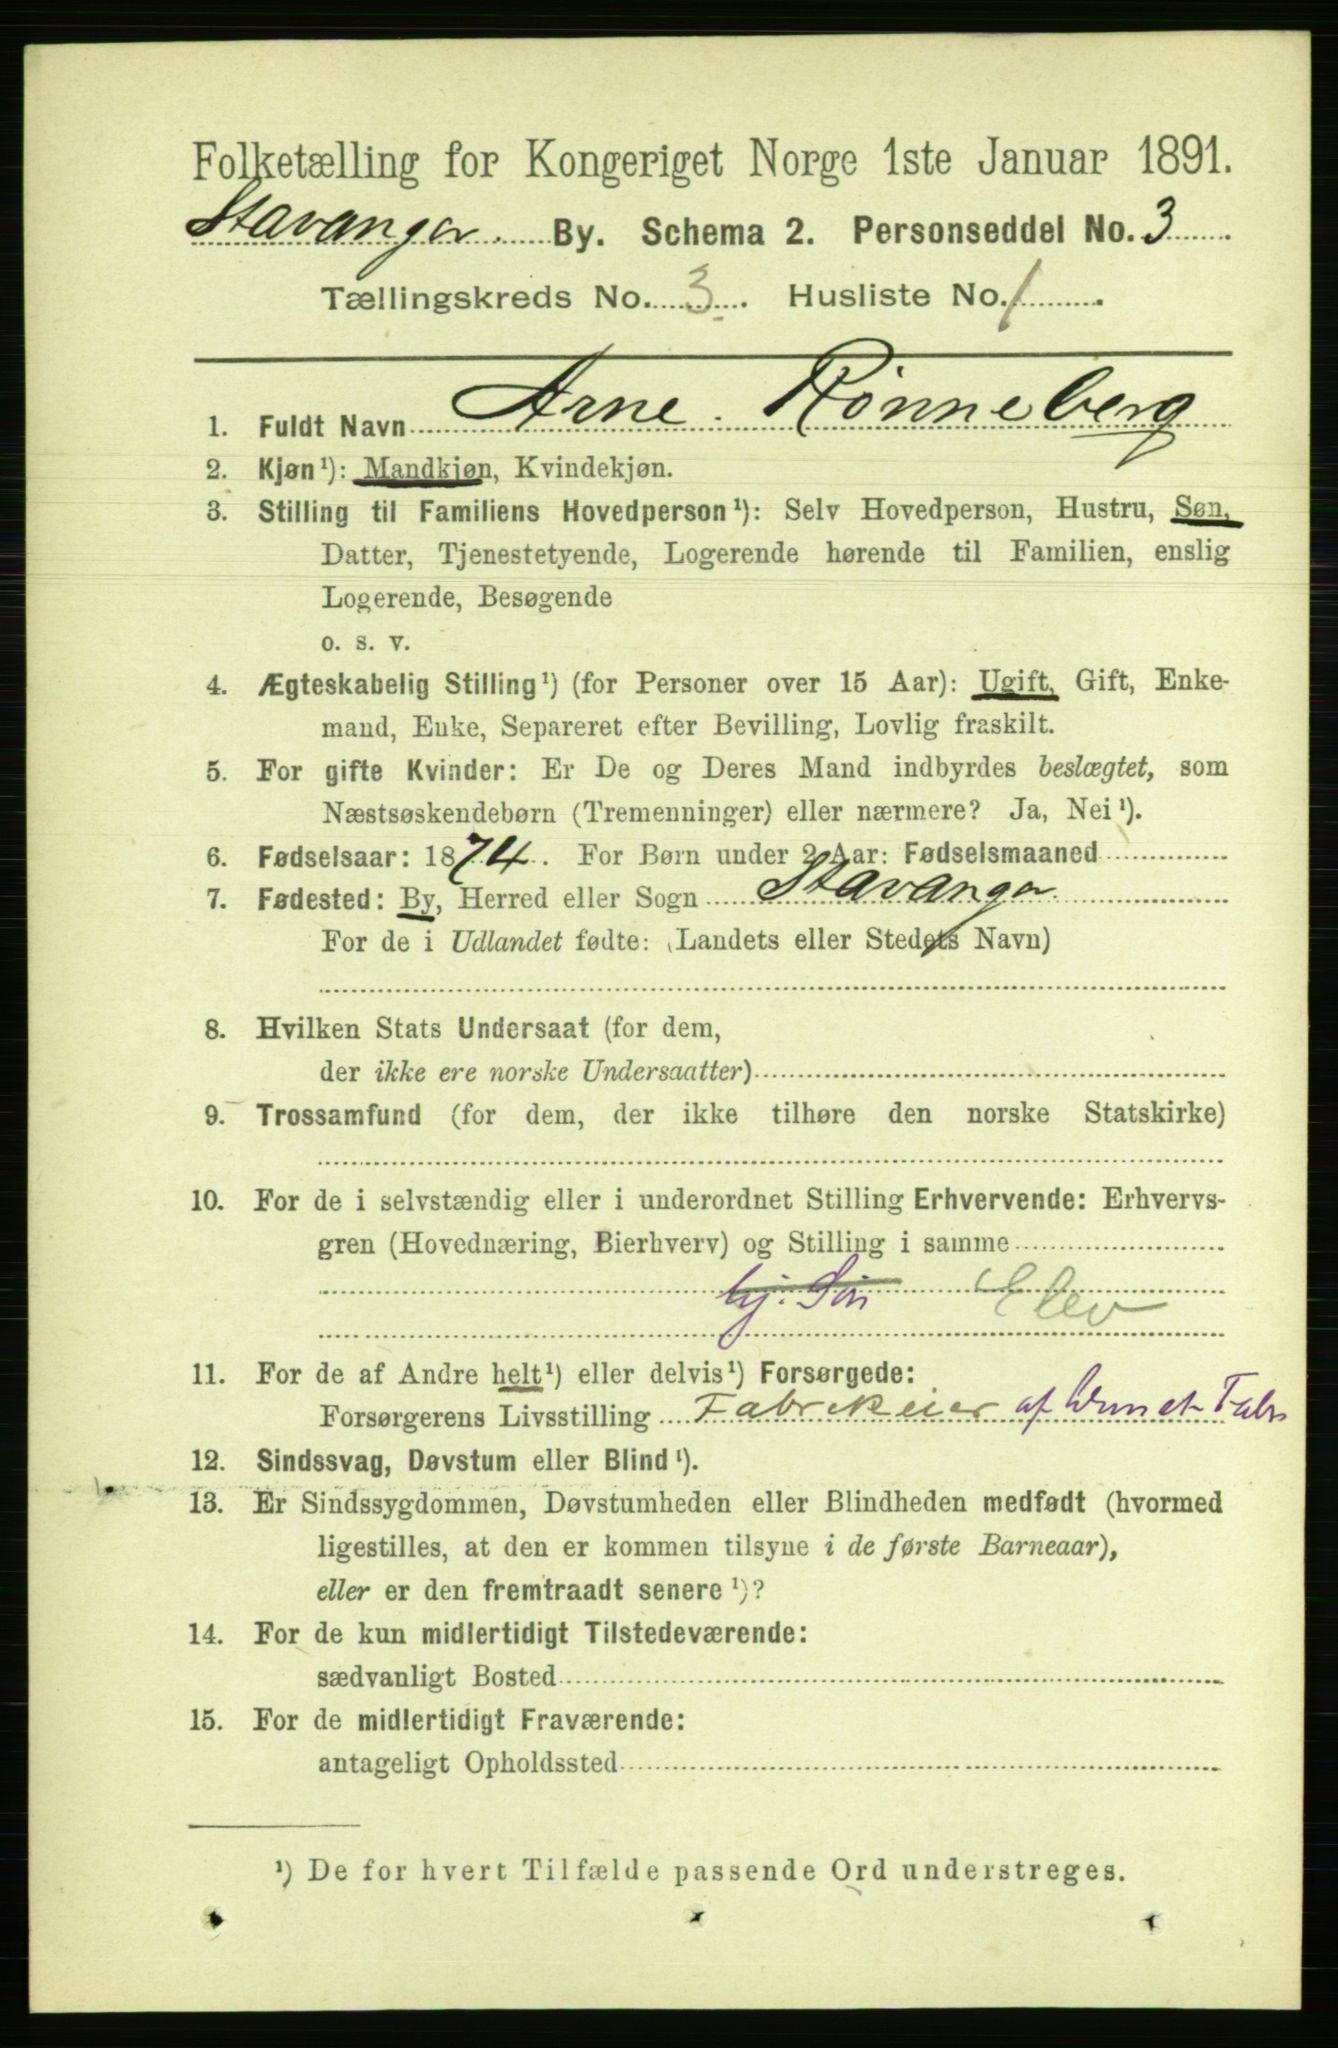 Folketælling for Kongeriget Norge 1ste Januar 1891.
Stavanger. By. Schema 2. Personseddel No. 3
Tællingskreds No. 3. Husliste No. 1
1. Fuldt Navn Arne Rönneberg
2. Kjøn¹): Mandkjøn, Kvindekjøn.
3. Stilling til Familiens Hovedperson¹): Selv Hovedperson, Hustru, Søn,
Datter, Tjenestetyende, Logerende hørende til Familien, enslig
Logerende, Besøgende
o. s. v.
4. Ægteskabelig Stilling¹) (for Personer over 15 Aar): Ugift, Gift, Enke-
mand, Enke, Separeret efter Bevilling, Lovlig fraskilt.
5. For gifte Kvinder: Er De og Deres Mand indbyrdes beslægtet, som
Næstsøskendebørn (Tremenninger) eller nærmere? Ja, Nei¹).
6. Fødselsaar: 1874. For Børn under 2 Aar: Fødselsmaaned
7. Fødested: By, Herred eller Sogn Stavanger
For de i Udlandet fødte: (Landets eller Stedets Navn)
8. Hvilken Stats Undersaat (for dem,
der ikke ere norske Undersaatter)
9. Trossamfund (for dem, der ikke tilhøre den norske Statskirke)
10. For de i selvstændig eller i underordnet Stilling Erhvervende: Erhvervs-
gren (Hovednæring, Bierhverv) og Stilling i samme
hj. Søn Elev
11. For de af Andre helt¹) eller delvis¹) Forsørgede:
Forsørgerens Livsstilling Fabrikeier af Fabr
12. Sindssvag, Døvstum eller Blind¹).
13. Er Sindssygdommen, Døvstumheden eller Blindheden medfødt (hvormed
ligestilles, at den er kommen tilsyne i de første Barneaar),
eller er den fremtraadt senere¹)?
14. For de kun midlertidigt Tilstedeværende:
sædvanligt Bosted
15. For de midlertidigt Fraværende:
antageligt Opholdssted
¹) De for hvert Tilfælde passende Ord understreges.